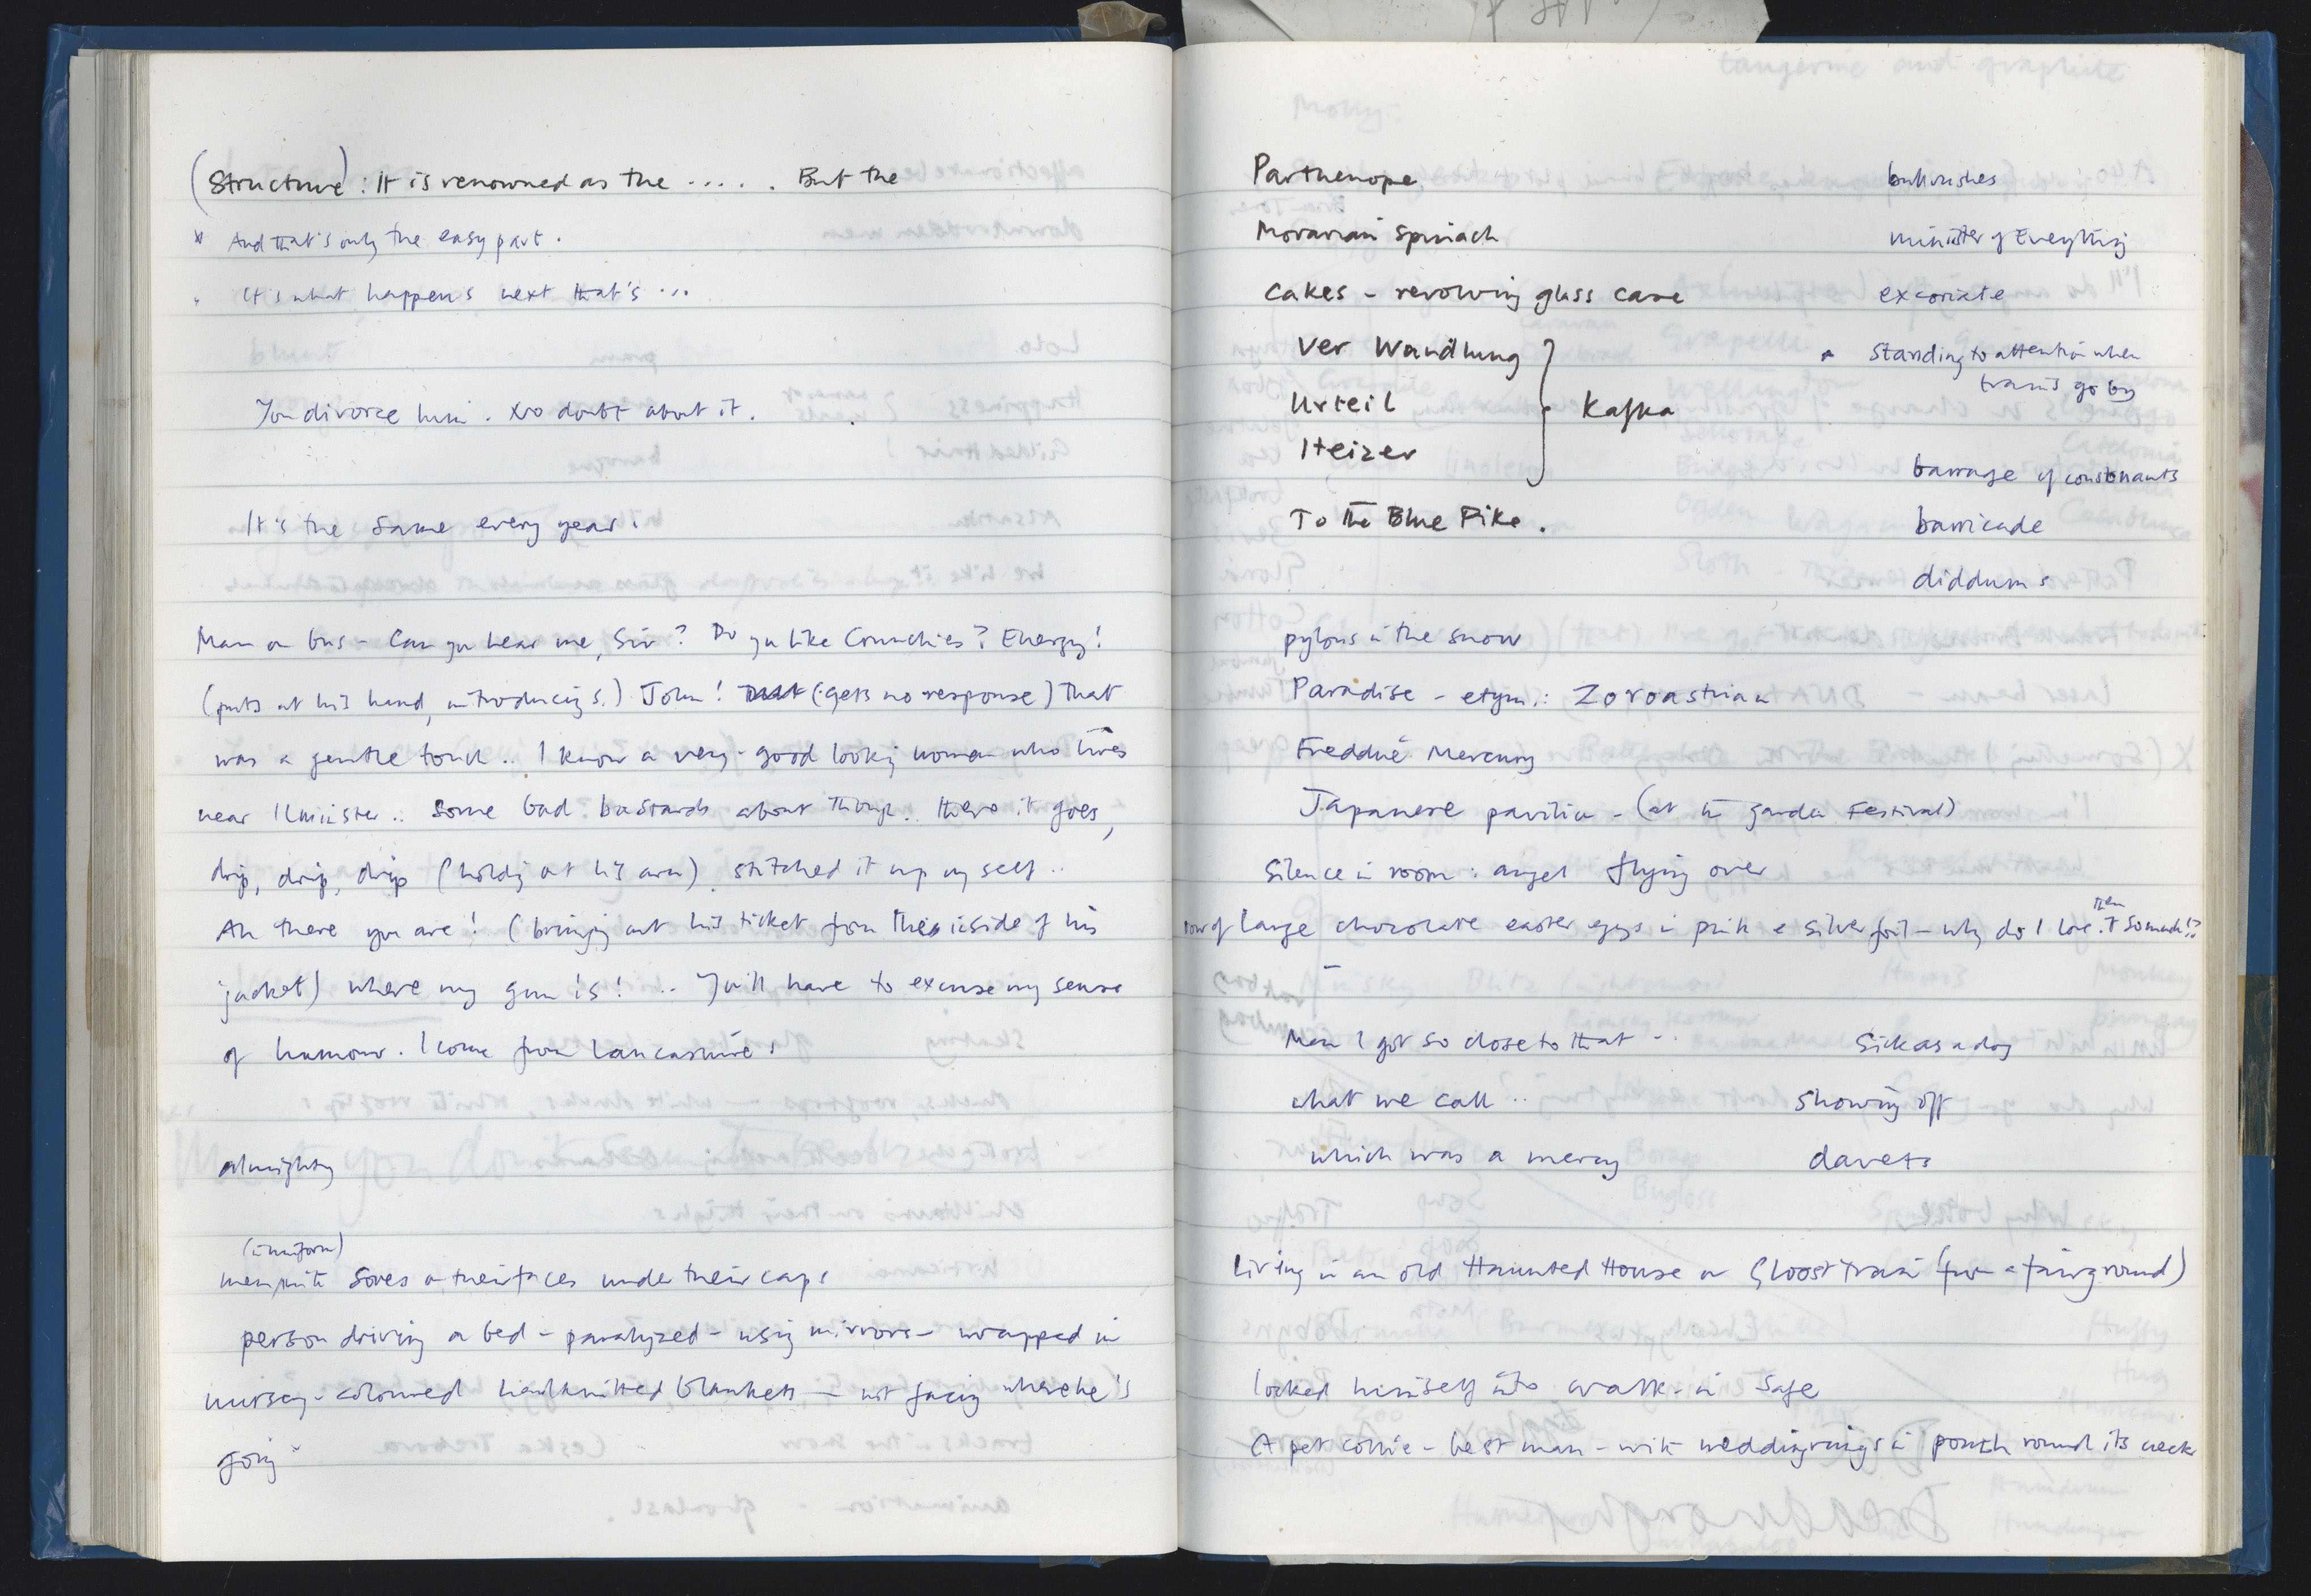 (Structure): It is renowned as the ..... But the
* And that's only the easy part.
It's what happens next that's ...
You divorce him. No doubt about it.
It's the same every year.
Man on bus - Can you hear me, Sir? Do you like Crunchies? Energy!
(puts out his hand, introducing s.) John! (gets no response) That
was a gentle touch.. I know a very-good looking woman who lives
near Ilminster.. Some bad bastards about though. There it goes,
drip, drip, drip (holding out his arm). stitched it up myself..
Ah there you are! (bringing out his ticket from the inside of his
jacket) where my gun is! .. You'll have to excuse my sense
of humour. I come from Lancashire.
almighty
(in uniform)
men, with sores on their faces under their caps
person driving a bed - paralyzed - using mirrors - wrapped in
nursery-coloured handknitted blankets - not facing where he's
going
Parthenope
Moravian Spinach
Cakes - revolving glass case
Ver Wandlung
Urteil
Heizer
Kafka
To the Blue Pike.
pylons in the snow
Paradise - etym.: Zoroastrian
Freddie Mercury
Japanese pavilion - (at the Garden Festival)
Silence in room: angel flying over
row of large chocolate easter eggs in pink & silver foil - why do I love them so much!?
Man I got so close to that ..
what we call ..
which was a mercy
bullrushes
Minister of Everything
excoriate
Standing to attention when
trains go by
barrage of consonants
barricade
diddums
Sick as a dog
Showing off
davets
Living in an old Haunted House or Ghost train (from a fairground)
locked himself into walk-in safe
A pet collie - best man - with wedding rings in pouch round its neck